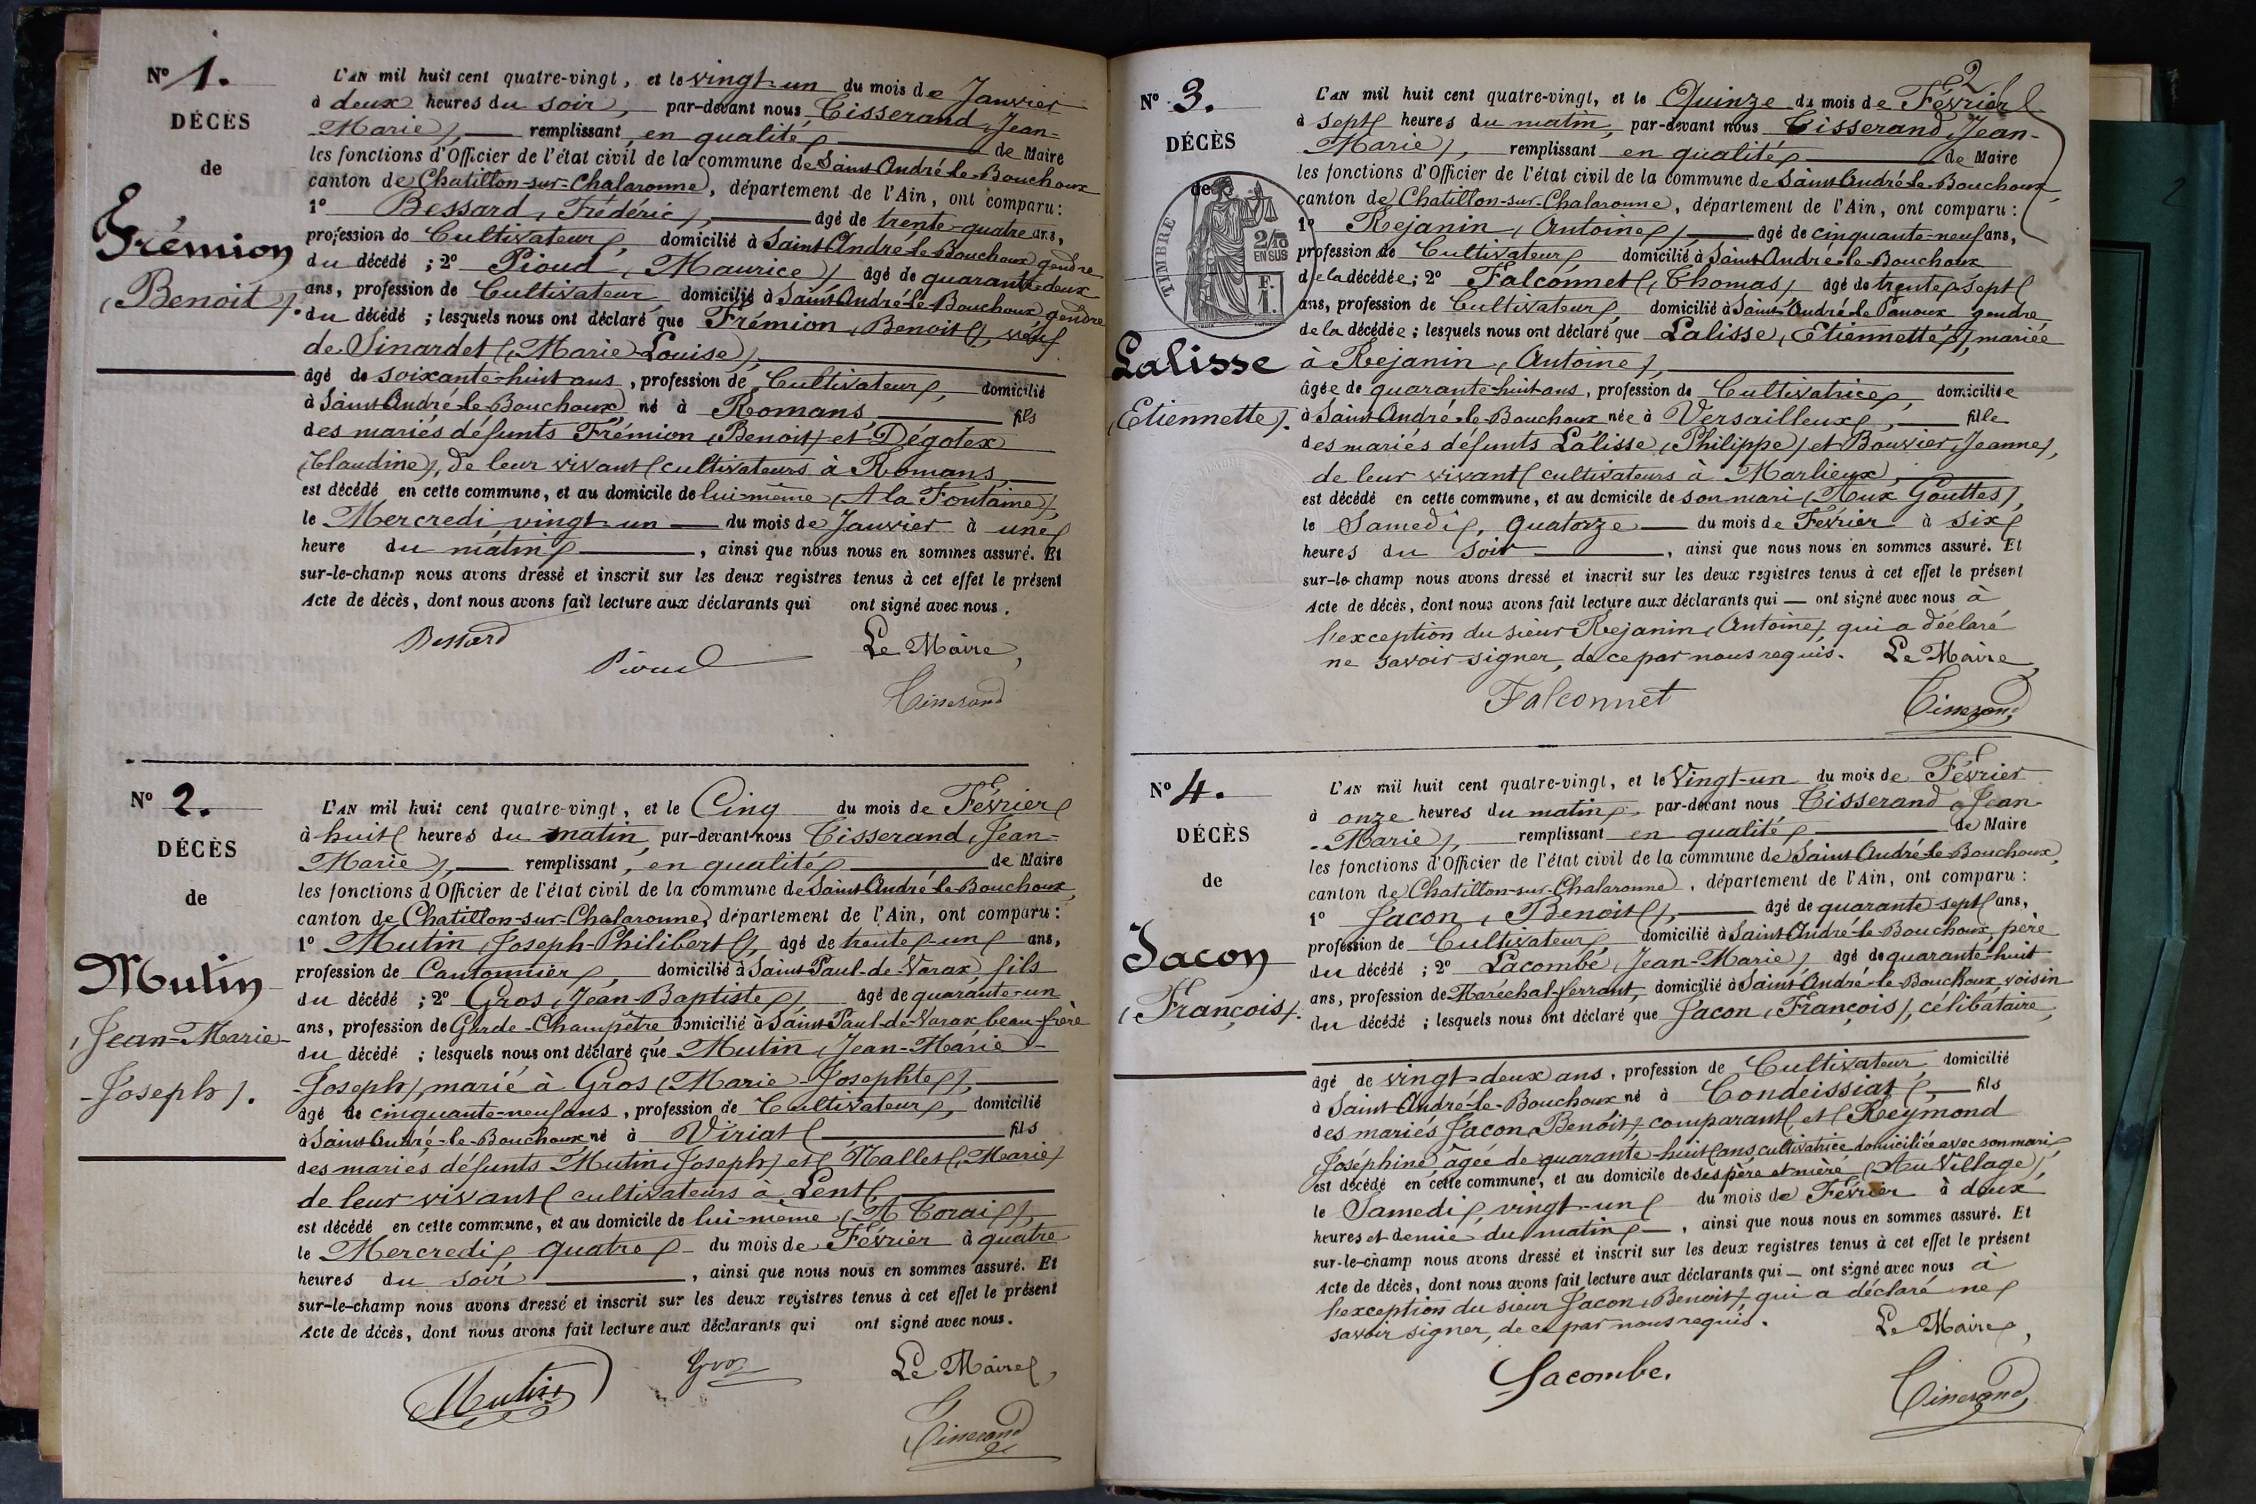 Nº 1.
DÉCÈS
de
Frémion
(Benoit).
L'AN mil huit cent quatre-vingt, et le vingt-un du mois de Janvier
à deux heures du soir, par-devant nous Tisserand, Jean-
Marie), remplissant en qualité de Maire
les fonctions d'Officier de l'état civil de la commune de Saint-André-le-Bouchoux
canton de Chatillon-sur-Chalaronne, département de l'Ain, ont comparu :
1º Bessard (Frédéric), âgé de trente-quatre ans,
profession de Cultivateur, domicilié à Saint-André-le-Bouchoux gendre
du décédé ; 2º Pioud (Maurice) âgé de quarante-deux
ans, profession de Cultivateur domicilié à Saint-André-le-Bouchoux gendre
du décédé ; lesquels nous ont déclaré que Frémion (Benoit), veuf
de Sinardet (Marie-Louise),
âgé de soixante-huit ans, profession de Cultivateur, domicilié
à Saint-André-le-Bouchoux né à Romans fils
des mariés défunts Frémion (Benoit) et Dégotex
(Claudine), de leur vivant cultivateurs à Romans
est décédé en cette commune, et au domicile de lui-même (A la Fontaine),
le Mercredi vingt-un du mois de Janvier à une
heure du matin, ainsi que nous nous en sommes assuré. Et
sur-le-champ nous avons dressé et inscrit sur les deux registres tenus à cet effet le présent
Acte de décès, dont nous avons fait lecture aux déclarants qui ont signé avec nous.
Bessard
Pioud
Le Maire,
Tisserand
Nº 2.
DÉCÈS
de
Mutin
(Jean-Marie-
Joseph).
L'AN mil huit cent quatre-vingt, et le Cinq du mois de Février
à huit heures du matin, par-devant nous Tisserand, Jean-
Marie), remplissant, en qualité de Maire
les fonctions d'Officier de l'état civil de la commune de Saint-André-le-Bouchoux,
canton de Chatillon-sur-Chalaronne, département de l'Ain, ont comparu :
1º Mutin (Joseph-Philibert), âgé de trente-un ans,
profession de Cantonnier, domicilié à Saint-Paul-de-Varax, fils
du décédé ; 2º Gros (Jean-Baptiste) âgé de quarante-un
ans, profession de Garde-Champêtre domicilié à Saint-Paul-de-Varax, beau-frère
du décédé ; lesquels nous ont déclaré que Mutin (Jean-Marie-
Joseph), marié à Gros (Marie-Josephte),
âgé de cinquante-neuf ans, profession de Cultivateur, domicilié
à Saint-André-le-Bouchoux né à Viriat fils
des mariés défunts Mutin (Joseph) et Mallet (Marie)
de leur vivant cultivateurs à Lent,
est décédé en cette commune, et au domicile de lui-même (A Torai),
le Mercredi, quatre du mois de Février à quatre
heures du soir, ainsi que nous nous en sommes assuré. Et
sur-le-champ nous avons dressé et inscrit sur les deux registres tenus à cet effet le présent
Acte de décès, dont nous avons fait lecture aux déclarants qui ont signé avec nous.
Mutin
Gros
Le Maire,
Tisserand
2
Nº 3.
DÉCÈS
de
TIMBRE
2/10
EN SUS
F.
1.
Lalisse
(Etiennette).
L'AN mil huit cent quatre-vingt, et le Quinze du mois de Février
à sept heures du matin, par-devant nous Tisserand, Jean-
Marie), remplissant en qualité de Maire
les fonctions d'Officier de l'état civil de la commune de Saint-André-le-Bouchoux,
canton de Chatillon-sur-Chalaronne, département de l'Ain, ont comparu :
1º Rejanin (Antoine), âgé de cinquante-neuf ans,
profession de Cultivateur, domicilié à Saint-André-le-Bouchoux
de la décédée ; 2º Falconnet (Thomas) âgé de trente-sept
ans, profession de Cultivateur, domicilié à Saint-André-le-Panoux gendre
de la décédée ; lesquels nous ont déclaré que Lalisse (Etiennette), mariée
à Rejanin (Antoine),
âgée de quarante-huit ans, profession de Cultivatrice, domiciliée
à Saint-André-le-Bouchoux née à Versailleux, fille
des mariés défunts Lalisse (Philippe) et Bouvier (Jeanne),
de leur vivant cultivateurs à Marlieux,
est décédé en cette commune, et au domicile de son mari (Aux Gouttes),
le Samedi, quatorze du mois de Février à six
heures du soir, ainsi que nous nous en sommes assuré. Et
sur-le-champ nous avons dressé et inscrit sur les deux registres tenus à cet effet le présent
Acte de décès, dont nous avons fait lecture aux déclarants qui — ont signé avec nous à
l'exception du sieur Rejanin (Antoine) qui a déclaré
ne savoir signer, de ce par nous requis. Le Maire,
Falconnet
Tisserand
Nº 4.
DÉCÈS
de
Jacon
(François).
L'AN mil huit cent quatre-vingt, et le Vingt-un du mois de Février
à onze heures du matin, par-devant nous Tisserand, Jean-
Marie), remplissant en qualité de Maire
les fonctions d'Officier de l'état civil de la commune de Saint-André-le-Bouchoux,
canton de Chatillon-sur-Chalaronne, département de l'Ain, ont comparu :
1º Jacon (Benoit), âgé de quarante-sept ans,
profession de Cultivateur, domicilié à Saint-André-le-Bouchoux, père
du décédé ; 2º Lacombe (Jean-Marie) âgé de quarante-huit
ans, profession de Maréchal-ferrant, domicilié à Saint-André-le-Bouchoux, voisin
du décédé ; lesquels nous ont déclaré que Jacon (François), célibataire,
âgé de vingt-deux ans, profession de Cultivateur domicilié
à Saint-André-le-Bouchoux né à Condeissiat, fils
des mariés Jacon (Benoit) comparant et Reymond
(Joséphine) âgée de quarante-huit ans, cultivatrice domiciliée avec son mari,
est décédé en cette commune, et au domicile de ses père et mère (Au Village),
le Samedi, vingt-un du mois de Février à deux
heures et demie du matin, ainsi que nous nous en sommes assuré. Et
sur-le-champ nous avons dressé et inscrit sur les deux registres tenus à cet effet le présent
Acte de décès, dont nous avons fait lecture aux déclarants qui — ont signé avec nous à
l'exception du sieur Jacon (Benoit) qui a déclaré ne
savoir signer, de ce par nous requis. Le Maire,
Lacombe.
Tisserand